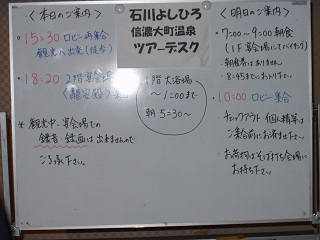 〈本日のご案内〉
・15=30 ロビー再集合
観光に出発(徒歩)
・18=20 2階宴会場
※ 観光中・宴会場での
録音・録画は出来ませんので
ご了承下さい。
石川よしひろ
信濃大町温泉
ツアーデスク
1階 大浴場
〜1:00まで
朝 5=30〜
〈明日のご案内〉
・7=00〜9=00 朝食
(1F 宴会場にてバイキング)
朝食券はありません
8=45までにお入り下さい
・10=00 ロビー集合
チェックアウト・個人精算は
ご集合前にお済ませ下さい。
お荷物はそば打ち会場に
お持ち下さい。